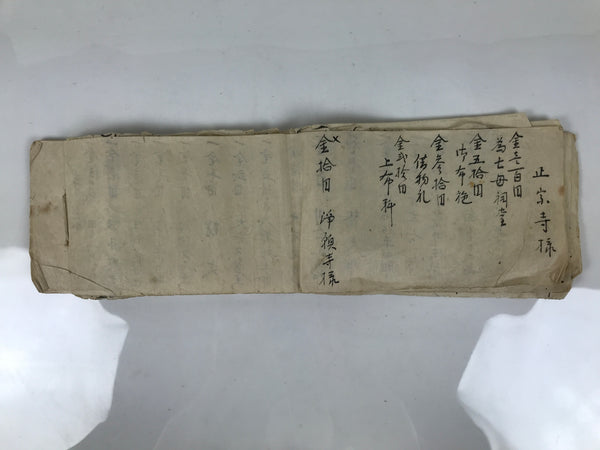 正宗寺様
金壱百円
為亡母祠堂
金五拾円
御布施
金参拾円
借物礼
金弐拾円
上布料
金拾円 浄願寺様